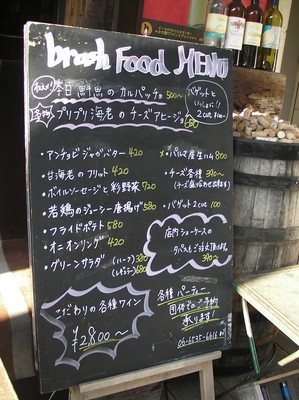 brash Food MENU
本日鮮魚のカルパッチョ 500～
プリプリ海老のチーズアヒージョ 680
バゲットと
いっしょに！
2cut 100-
・アンチョビジャガバター 420
・甘海老のフリット 420
・ボイルソーセージと彩野菜 720
・若鶏のジューシー唐揚げ 580
・フライドポテト 580
・オニオンリング 420
・グリーンサラダ (ハーフ) 380
(レギュラー) 680
・パルマ産生ハム 800
・チーズ各種 390～
(チーズ盛り合わせ出来ます)
・バゲット2cut 100
店内ショーケースの
タパスもご注文頂けます。
390～
こだわりの各種ワイン
¥2,800～
各種パーティー
団体でのご予約
承ります！
06-6535-6616